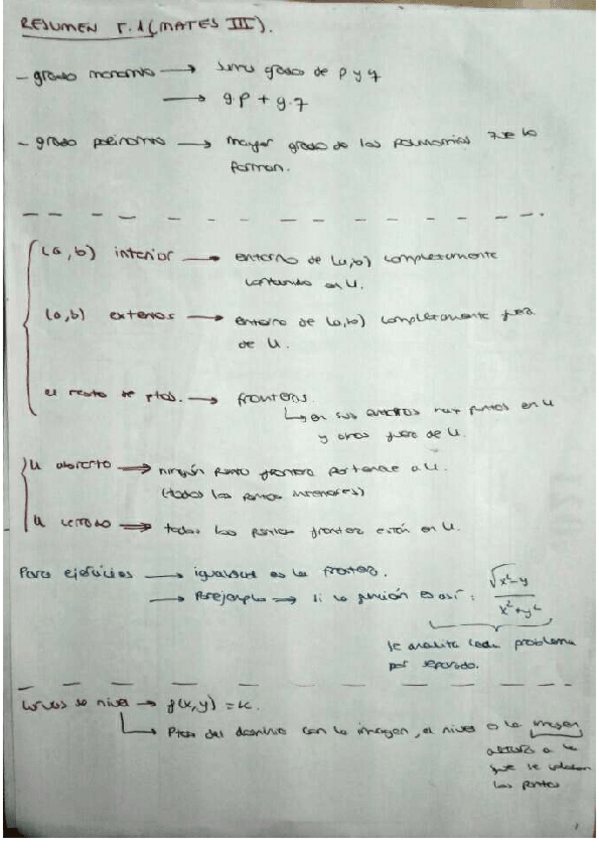 RESUMEN T.1 (MATES III).
- grado monomio → suma grados de p y q
→ g.p + g.q
- grado polinomio → mayor grado de los polinomios que lo
forman.
(a,b) interior → entorno de (a,b) completamente
contenido en U.
(a,b) exterior → entorno de (a,b) completamente fuera
de U.
el resto de ptos. → fronteras.
↳ en sus entornos hay puntos en U
y otros fuera de U.
U abierto ⇒ ningún punto frontera pertenece a U.
(todos los puntos interiores)
U cerrado ⇒ todos los puntos frontera están en U.
Para ejercicios → es la frontera.
→ Por ejemplo ⇒ si la función es así: √x²-y / x²+y²
se analiza cada problema
por separado.
Curvas de nivel → f(x,y) = k.
↳ Ptos del dominio con la imagen, el nivel o la imagen
altura a la
que se
los puntos